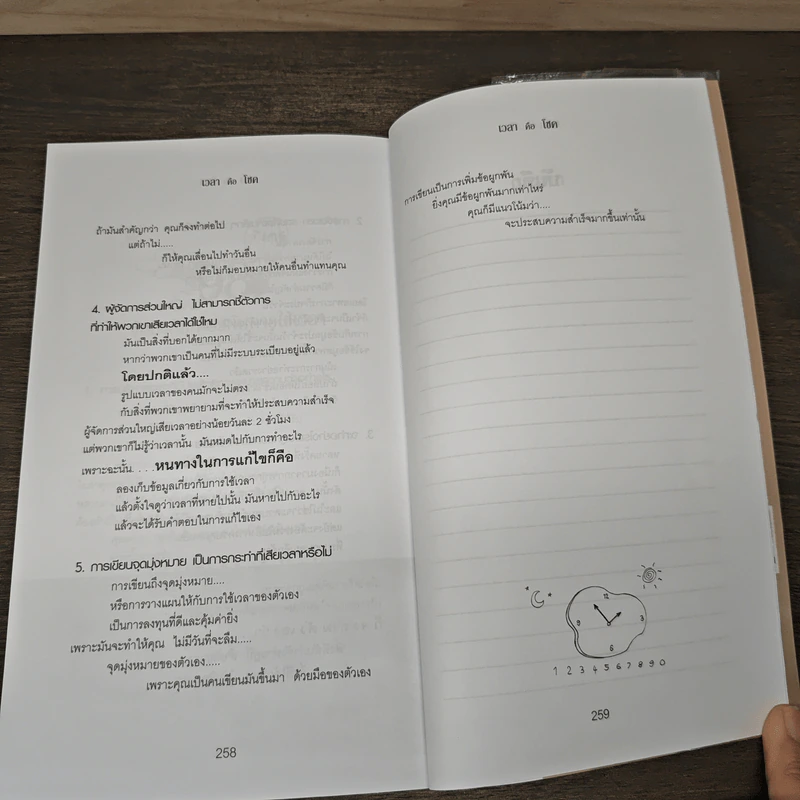 เวลา คือ โชค
ถ้ามันสำคัญกว่า คุณก็จงทำต่อไป
แต่ถ้าไม่....
ก็ให้คุณเลื่อนไปทำวันอื่น
หรือไม่ก็มอบหมายให้คนอื่นทำแทนคุณ
4. ผู้จัดการส่วนใหญ่ ไม่สามารถชี้ตัวการ
ที่ทำให้พวกเขาเสียเวลาได้ใช่ไหม
มันเป็นสิ่งที่บอกได้ยากมาก
หากว่าพวกเขาเป็นคนที่ไม่มีระบบระเบียบอยู่แล้ว
โดยปกติแล้ว....
รูปแบบเวลาของคนมักจะไม่ตรง
กับสิ่งที่พวกเขาพยายามที่จะทำให้ประสบความสำเร็จ
ผู้จัดการส่วนใหญ่เสียเวลาอย่างน้อยวันละ 2 ชั่วโมง
แต่พวกเขาก็ไม่รู้ว่าเวลานั้น มันหมดไปกับการทำอะไร
เพราะฉะนั้น.... หนทางในการแก้ไขก็คือ
ลองเก็บข้อมูลเกี่ยวกับการใช้เวลา
แล้วตั้งใจดูว่าเวลาที่หายไปนั้น มันหายไปกับอะไร
แล้วจะได้รับคำตอบในการแก้ไขเอง
5. การเขียนจุดมุ่งหมาย เป็นการกระทำที่เสียเวลาหรือไม่
การเขียนถึงจุดมุ่งหมาย....
หรือการวางแผนให้กับการใช้เวลาของตัวเอง
เป็นการลงทุนที่ดีและคุ้มค่ายิ่ง
เพราะมันจะทำให้คุณ ไม่มีวันที่จะลืม.....
จุดมุ่งหมายของตัวเอง.....
เพราะคุณเป็นคนเขียนมันขึ้นมา ด้วยมือของตัวเอง
258
เวลา คือ โชค
การเขียนเป็นการเพิ่มข้อผูกพัน
ยิ่งคุณมีข้อผูกพันมากเท่าไหร่
คุณก็มีแนวโน้มว่า....
จะประสบความสำเร็จมากขึ้นเท่านั้น
12
9 3
6
1 2 3 4 5 6 7 8 9 0
259